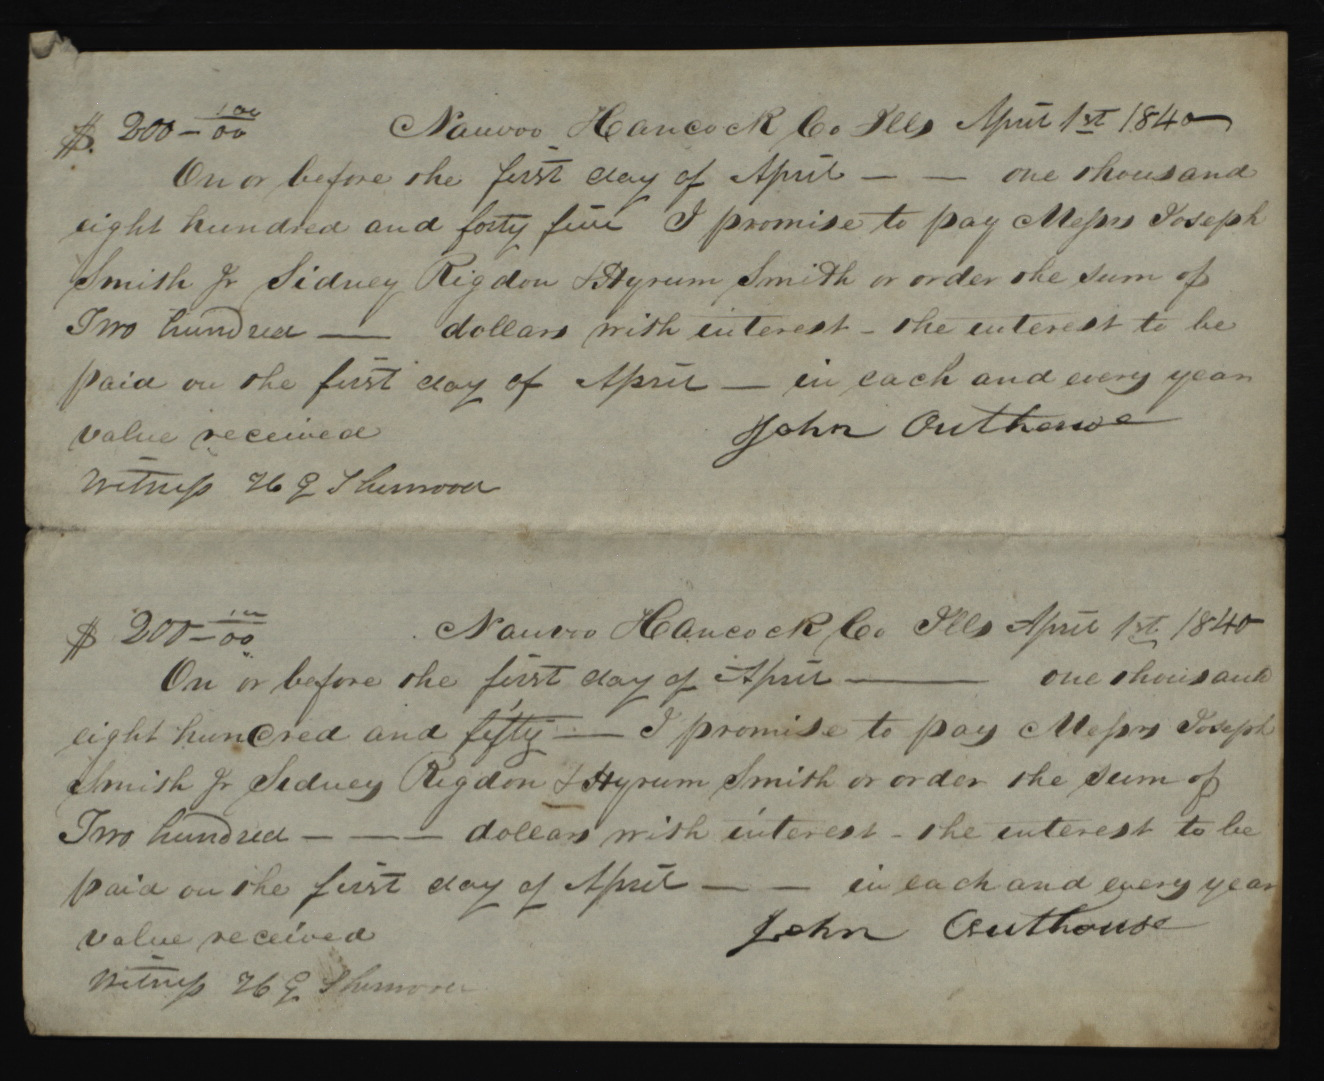 $ 200 - 100/00 Nauvoo Hancock Co Ills April 1st 1840
On or before the first day of April — — one thousand
eight hundred and forty five I promise to pay Messrs Joseph
Smith Jr Sidney Rigdon & Hyrum Smith or order the sum of
Two hundred — dollars with interest - the interest to be
paid on the first day of April — in each and every year
value received John Outhouse
Witness H G Sherwood
$ 200 - 100/00 Nauvoo Hancock Co Ills April 1st 1840
On or before the first day of April — one thousand
eight hundred and fifty — I promise to pay Messrs Joseph
Smith Jr Sidney Rigdon & Hyrum Smith or order the sum of
Two hundred — — — dollars with interest - the interest to be
paid on the first day of April — — in each and every year
value received John Outhouse
Witness H G Sherwood